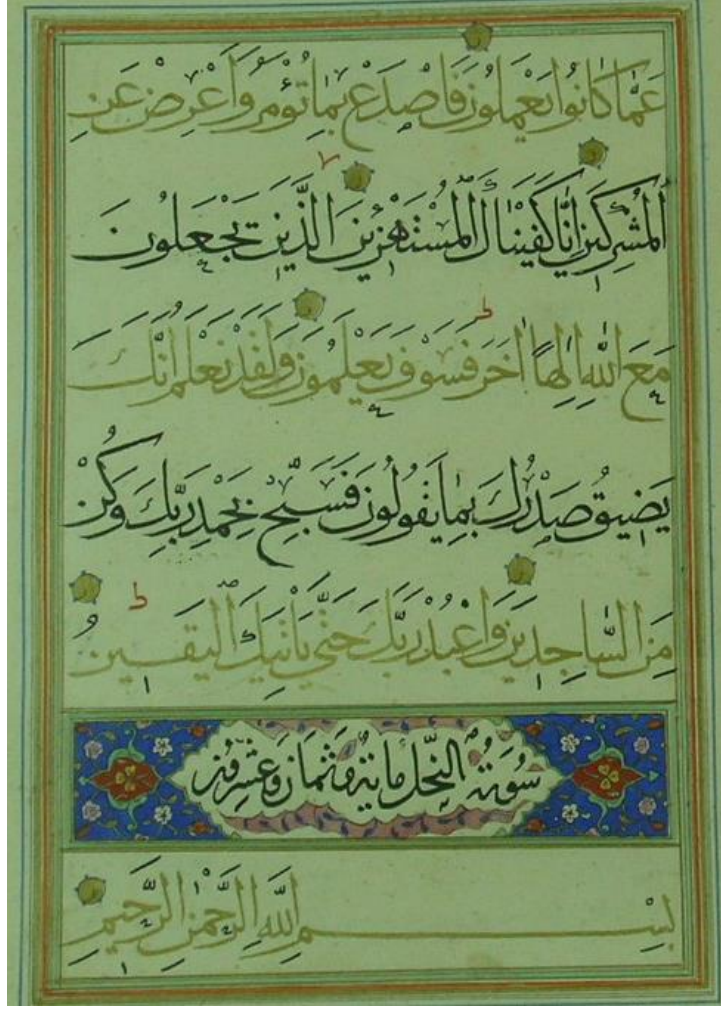 عَمَّا كَانُوا يَعْمَلُونَ فَاصْدَعْ بِمَا تُؤْمَرُ وَأَعْرِضْ عَنِ
الْمُشْرِكِينَ إِنَّا كَفَيْنَاكَ الْمُسْتَهْزِئِينَ الَّذِينَ يَجْعَلُونَ
مَعَ اللَّهِ إِلَٰهًا آخَرَ فَسَوْفَ يَعْلَمُونَ وَلَقَدْ نَعْلَمُ أَنَّكَ
يَضِيقُ صَدْرُكَ بِمَا يَقُولُونَ فَسَبِّحْ بِحَمْدِ رَبِّكَ وَكُنْ
مِنَ السَّاجِدِينَ وَاعْبُدْ رَبَّكَ حَتَّىٰ يَأْتِيَكَ الْيَقِينُ
سُورَةُ النَّحْلِ مِائَةٌ وَثَمَانٌ وَعِشْرُونَ
بِسْمِ اللَّهِ الرَّحْمَٰنِ الرَّحِيمِ